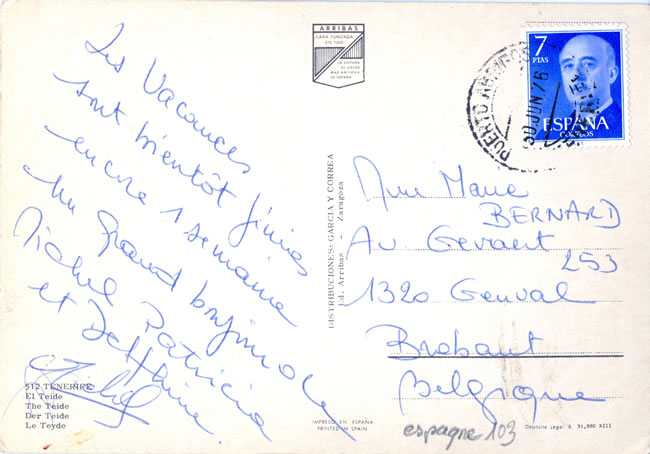 ARRIBAS
CASA FUNDADA
EN 1905
LA EDITORA
DE VISTAS
MAS ANTIGUA
DE ESPAÑA
Les Vacances
sont bientôt finies
encore 1 semaine
Un grand bonjour de
Michel Patricia
et Delphine.
Michel
512 TENERIFE
El Teide
The Teide
Der Teide
Le Teyde
DISTRIBUCIONES: GARCIA Y CORREA
Ed. Arribas - Zaragoza
IMPRESO EN ESPAÑA
PRINTED IN SPAIN
7
PTAS
ESPAÑA
CORREOS
PUERTO
30 JUN 76
Mme Marie
BERNARD
Av Gevaert
253
1320 Genval
Brabant
Belgique
espagne 103
Depósito Legal B. 31,990 XIII